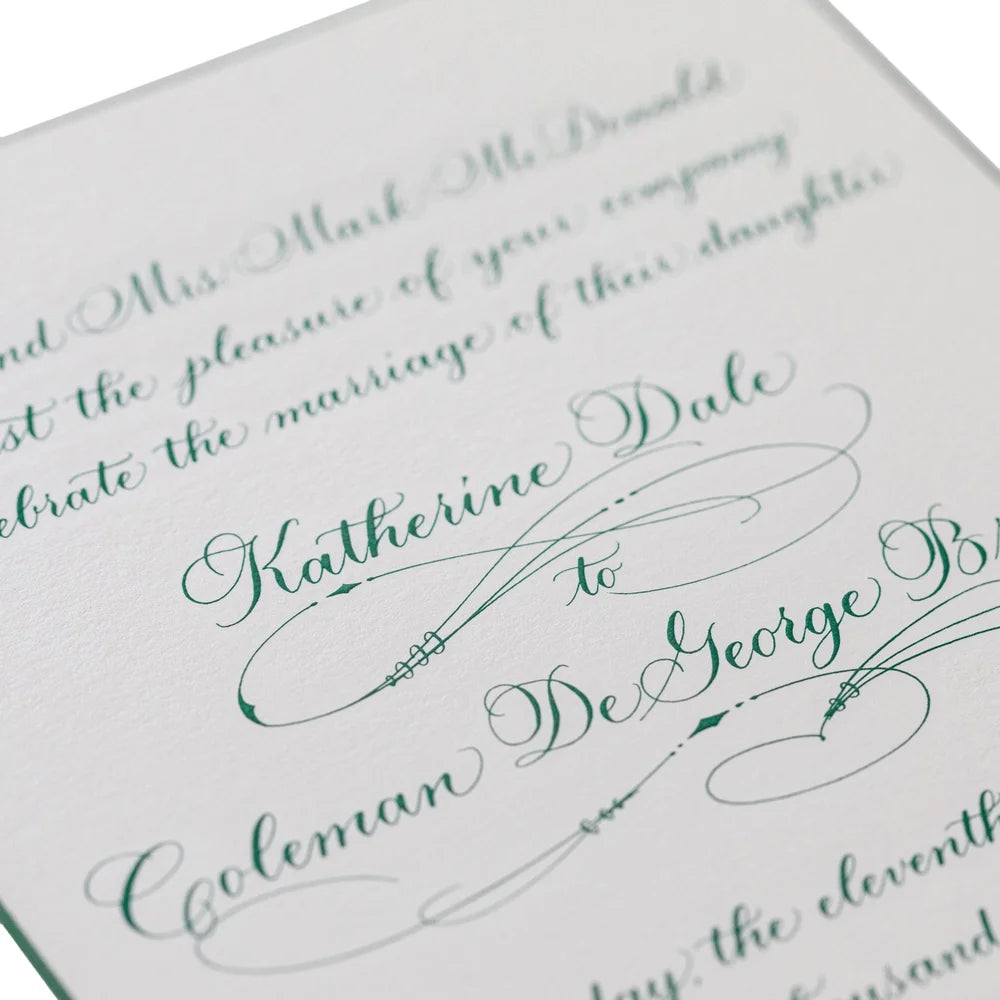 nd Mrs. Mark McDonald
st the pleasure of your company
ebrate the marriage of their daughter
Katherine Dale
to
Coleman DeGeorge B
day, the eleventh
thousand